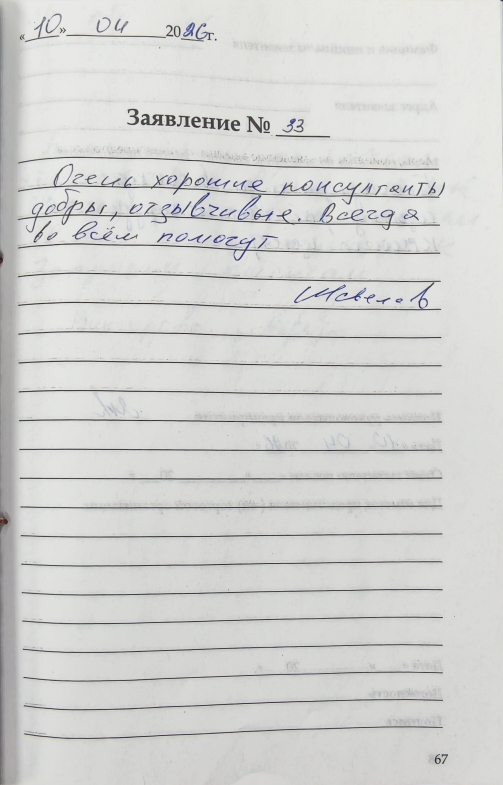 «10» 04 2026г.
Заявление № 33
Очень хорошие консультанты
добры, отзывчивые. Всегда
во всём помогут
67